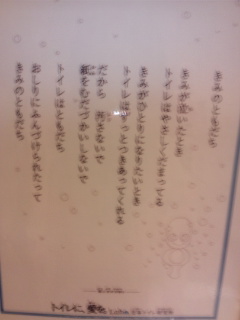 きみのともだち
きみが泣いたとき
トイレはやさしくだまってる
きみがひとりになりたいとき
トイレはずっとつきあってくれる
だから 汚さないで
紙をむだづかいしないで
トイレはともだち
おしりにふんづけられたって
きみのともだち
トイレに、愛を。